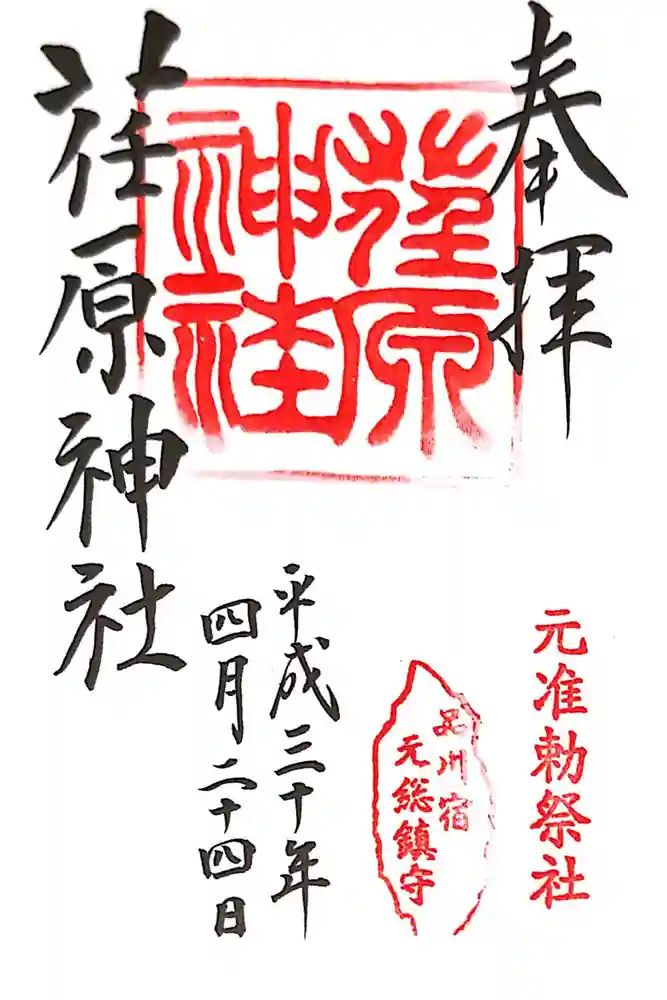 奉拝
元准勅祭社
荏原
神社
品川宿
元総鎮守
平成三十年
四月二十四日
荏原神社